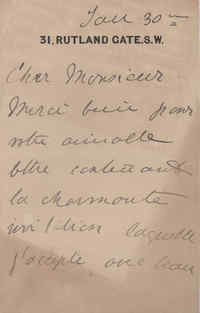 Jan 30
31, RUTLAND GATE. S.W.
Cher Monsieur
Merci bien pour
votre aimable
lettre contenant
la charmante
invitation laquelle
j'accepte avec